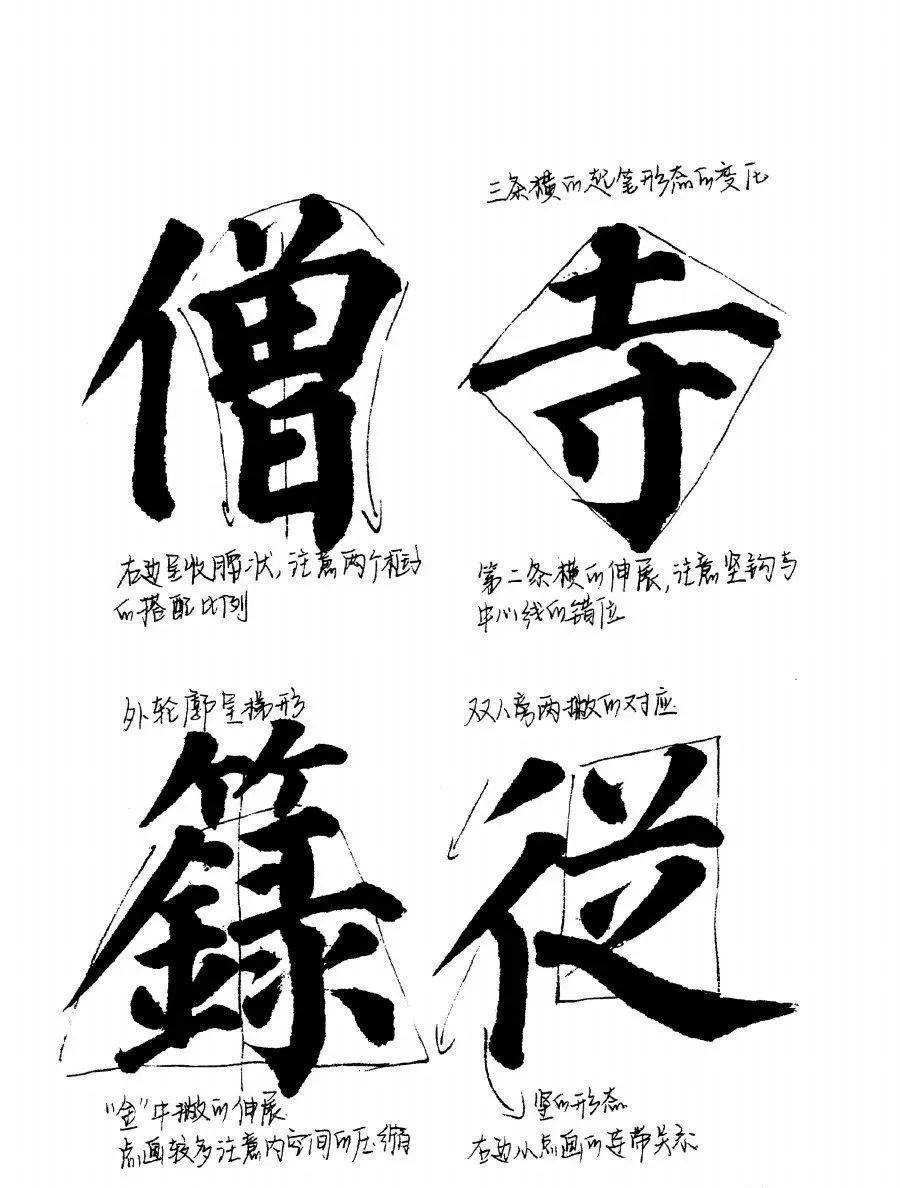 三条横的起笔形态的变化
僧
寺
右边呈收腰状，注意两个框动
的搭配比例
第二条横的伸展，注意竖钩与
中心线的错位
外轮廓呈梯形
双人旁两撇的对应
籙
從
"金"中撇的伸展
点画较多注意内空间的压缩
竖的形态
右边从点画的连带关系